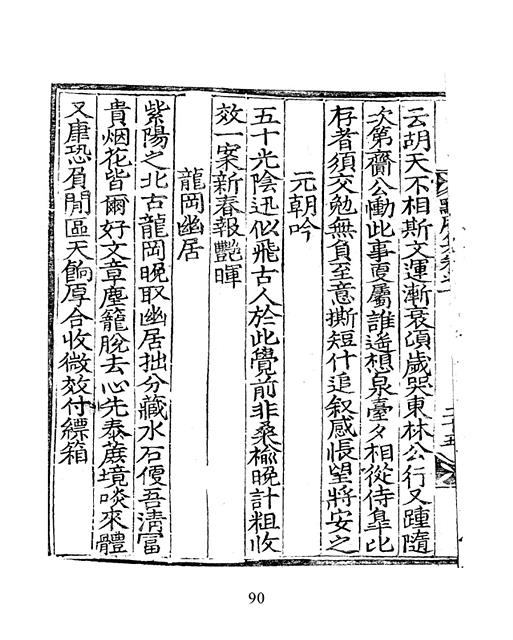 云胡天不相斯文運漸衰頌歲哭東林公行又踵隨
次第齎公慟此事更屬誰遙想泉臺夕相從侍臯比
存者須交勉無負至意撕短什追叙感悵望將安之
元朝吟
五十光陰迅似飛古人於此覺前非桑楡晩計粗收
效一案新春報艷暉
龍岡幽居
紫陽之北古龍岡晩取幽居拙分藏水石便吾淸富
貴烟花皆爾好文章塵籠脫去心先泰蔗境啖來體
又康恐負閒區天餉厚合收微效付縹箱
二十五
90